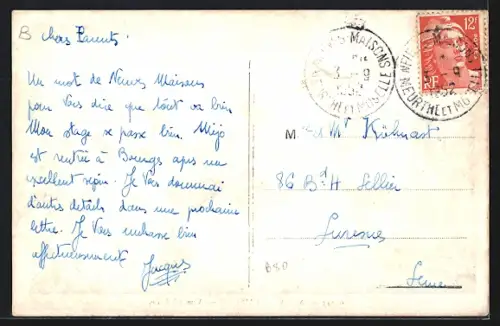 B
Chers Parents.
Un mot de Neuves Maisons
pour Vous dire que tout va bien
Mon stage se passe bien. Mijo
est rentrée à Bourges après un
excellent séjour. Je Vous donnerai
d'autres détails dans une prochaine
lettre. Je Vous embrasse bien
affectueusement
Jacques
NEUVES MAISONS
3 - 9
1952
MEURTHE ET MOSELLE
12F
RF
MAISONS
3 9
1952
MEURTHE ET MOSELLE
M et Me Kühnast
86 Bd H Sellier
Suresnes
Seine